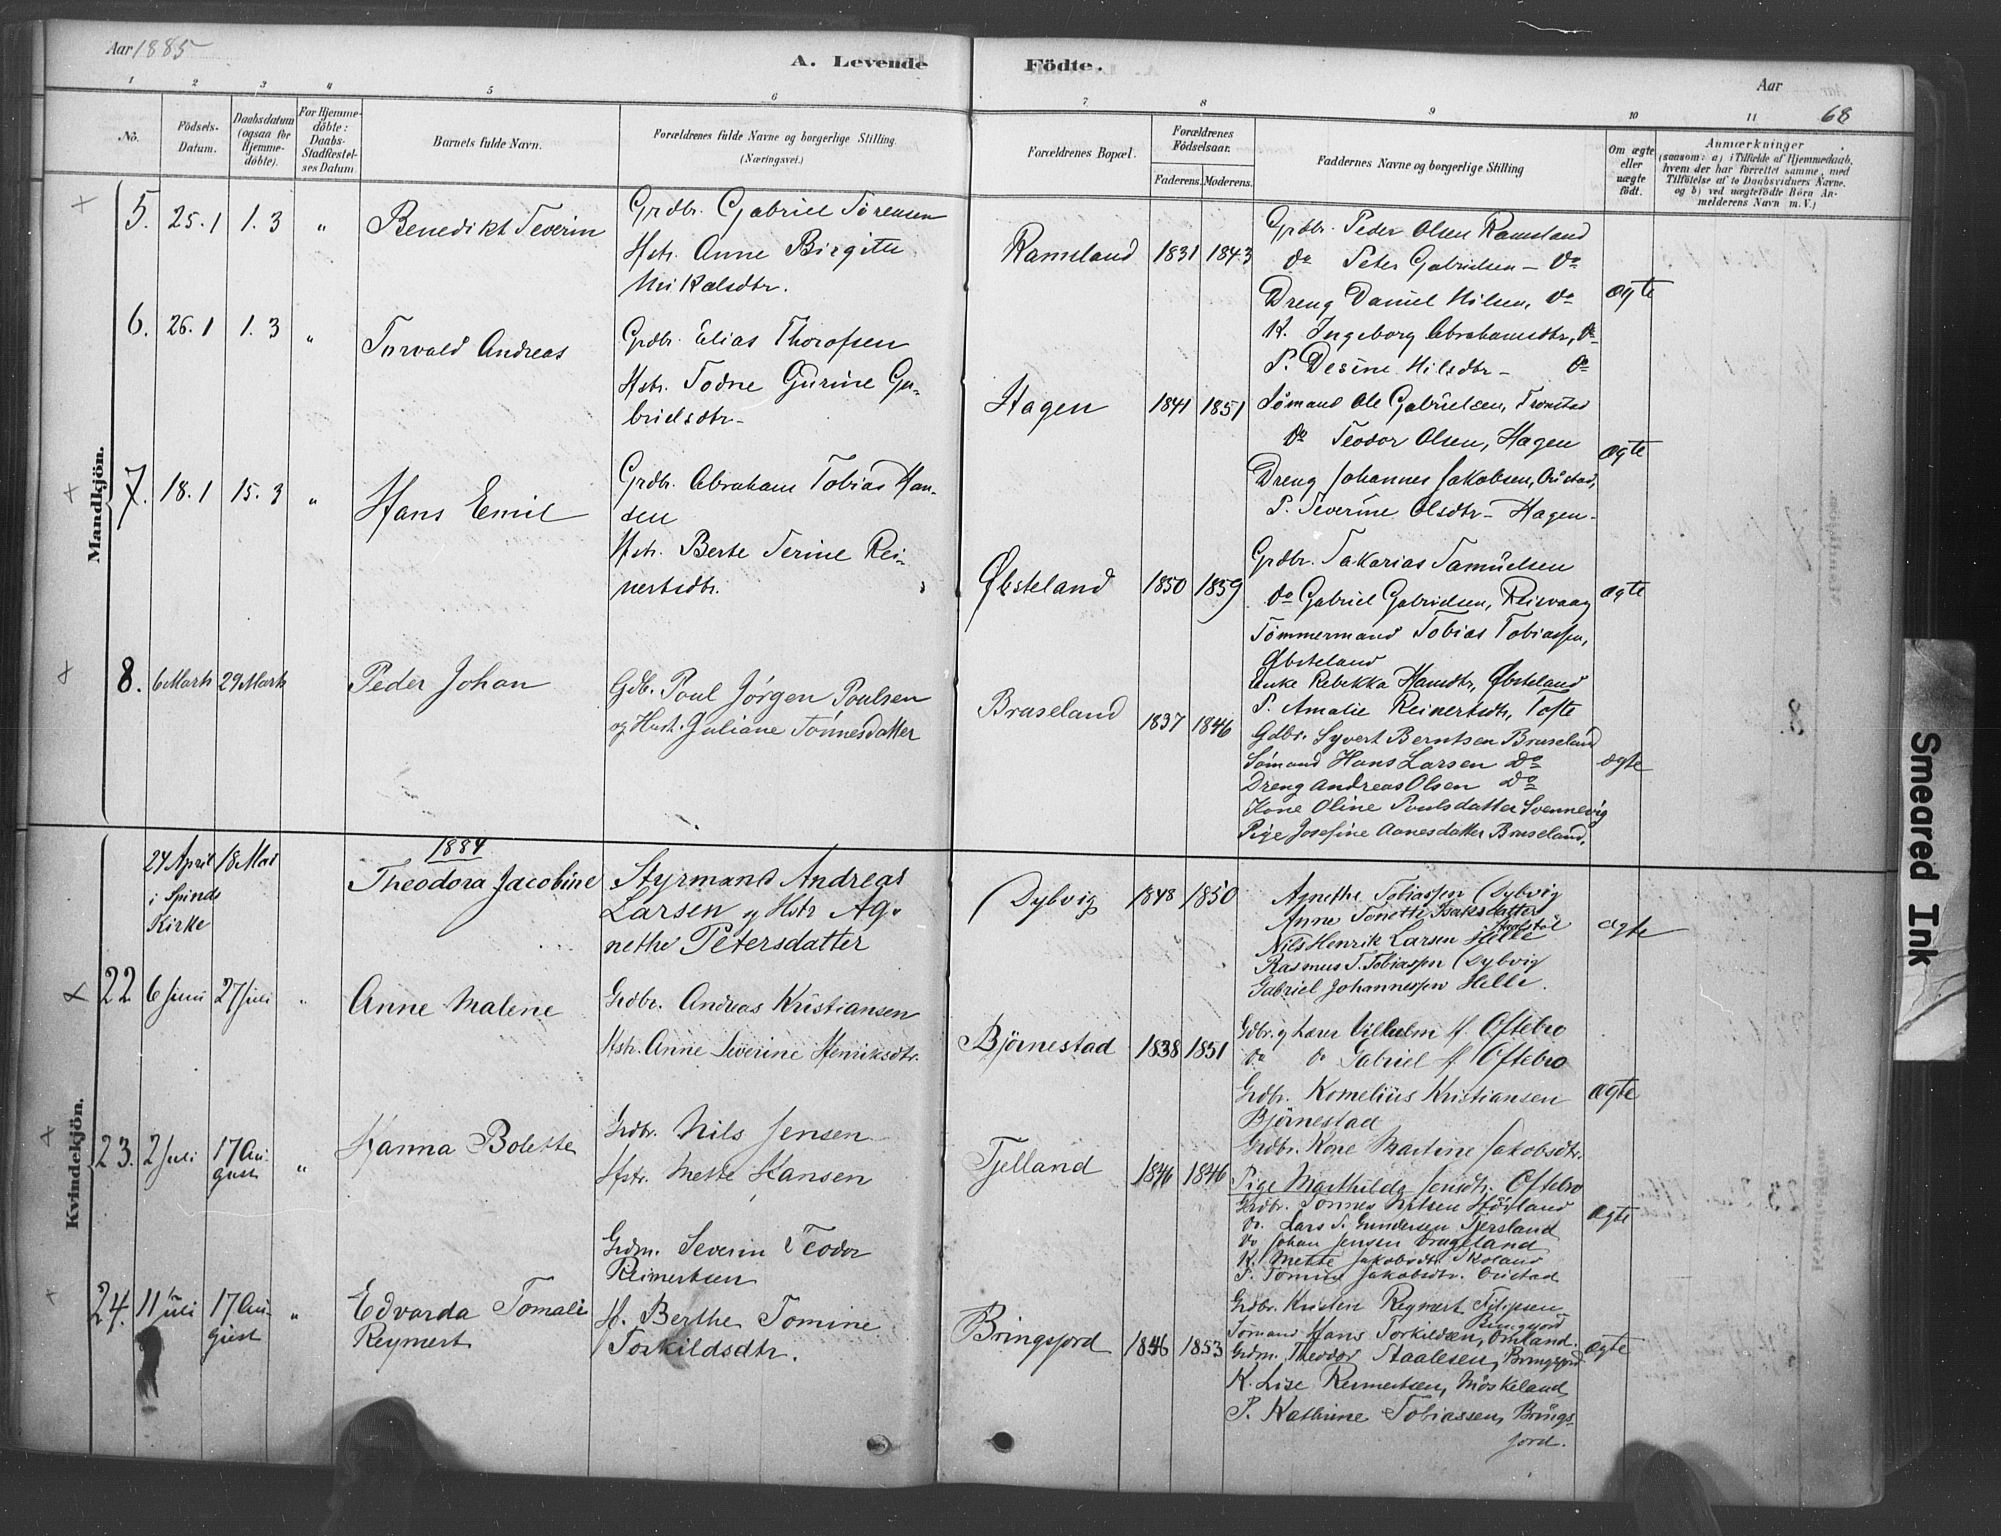 Aar 1885
A. Levende Födte.
Aar
68
1 2 3 4 5 6 7 8 9 10 11
No.
Födsels-Datum.
Daabsdatum (ogsaa for Hjemme-döbte).
For Hjemme-döbte: Daabs-Stadfestel-ses Datum
Barnets fulde Navn.
Forældrenes fulde Navne og borgerlige Stilling
(Næringsvei.)
Forældrenes Bopæl.
Forældrenes Födselsaar.
Faderens. Moderens.
Faddernes Navne og borgerlige Stilling
Om ægte eller uægte födt.
Anmærkninger
(saasom: a) i Tilfælde af Hjemmedaab,
hvem der har forrettet samme, med
Tilföielse af to Daabsvidners Navne.
og b) ved uægtefödte Börn An-
melderens Navn m. V.)
Mandkjön.
5. 25.1 1.3 " Benedikt Severin
Grdbr. Gabriel Sörensen
Hstr. Anne Birgitte
Mikalsdtr.
Ramsland 1831 1843
Grdbr. Peder Olsen Ramsland
do Peter Gabrielsen – do
Dreng Daniel Nilsen, do
K. Ingeborg Abrahamsdtr, do
P. Desine Nilsdtr – do
ægte
6. 26.1 1.3 " Torvald Andreas
Grdbr. Elias Thorofsen
Hstr. Todne Gurine Ga-
brielsdtr –
Hagen 1841 1851
Sömand Ole Gabrielsen, Tronstad
do Teodor Olsen, Hagen
Dreng Johannes Jakobsen, Öistad,
P. Severine Olsdtr – Hagen –
ægte
7. 18.1 15.3 " Hans Emil
Grdbr. Abraham Tobias Han-
sen
Hstr. Berte Serine Rei-
nertsdtr.
Øbsteland 1850 1859
Grdbr. Sakarias Samuelsen
do Gabriel Gabrielsen, Reisvaag
Tömmermand Tobias Tobiassen,
Øbsteland
Enke Rebekka Hansdtr, Øbsteland
P. Amalie Reinertsdtr, Tofte
ægte
8. 6 Marts 29 Marts Peder Johan
Gdb. Poul Jörgen Poulsen
og Hust. Juliane Tönnesdatter
Braseland 1837 1846
Gdbr. Syvert Berntsen Braseland
Sömand Hans Larsen Do
Dreng Andreas Olsen Do
Kone Oline Poulsdatter Svennevig
Pige Josefine Aanesdatter Braseland,
ægte
Kvindekjön.
1884
24 April 18 Mai
i Spinds
Kirke
Theodora Jacobine
Styrmand Andreas
Larsen og Hstr Ag-
nethe Petersdatter
Dybvig 1848 1850
Agnethe Tobiassen Dybvig
Anne Tonette Isaksdatter
Nils Henrik Larsen Helle
Rasmus T. Tobiassen Dybvig
Gabriel Johannessen Helle.
ægte
22 6 Juni 27 Juli " Anne Malene
Grdbr. Andreas Kristiansen
Hstr. Anne Severine Henriksdtr.
Björnestad 1838 1851
Gdbr. og Lærer Vilhelm H. Oftebro
do do Gabriel H. Oftebro
Grdbr. Kornelius Kristiansen
Björnestad
Grdbr. Kone Martine Jakobsdtr.
Pige Mathilde Jensdtr. Oftebro
ægte
23. 2 Juli 17 Au-
gust " Hanna Bolette
Grdbr. Nils Jensen
Hstr. Mette Hansen
Tjelland 1846 1846
Grdbr. Tönnes Nilsen Hövland
do. Lars S. Gundersen Tjersland
do Johan Jensen Drageland
K. Mette Jakobsdtr. Skoland
P. Tomine Jakobsdtr. Öistad
ægte
24. 11 Juli 17 Au-
gust " Edvarda Tomalie
Reymert
Grdm. Severin Teodor
Reimertsen
H. Berthe Tomine
Torkildsdtr.
Bringsjord 1846 1853
Grdbr. Kristen Reymert Filipsen
Bringsjord
Sömand Hans Torkildsen, Omland.
Grdm. Theodor Staalesen, Bringsjord
K. Lise Reimertsen, Möskeland,
P. Kathrine Tobiassen, Brings-
jord.
ægte
Smeared Ink